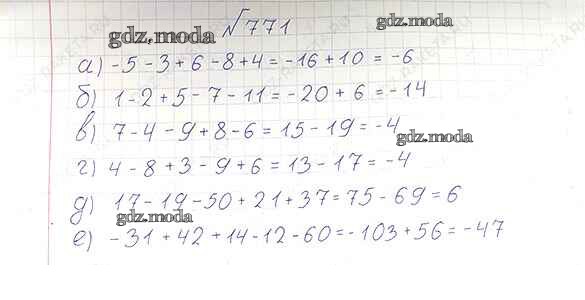 №771
gdz.moda
gdz.moda
а) -5-3+6-8+4=-16+10=-6
б) 1-2+5-7-11=-20+6=-14
в) 7-4-9+8-6=15-19=-4
gdz.moda
г) 4-8+3-9+6=13-17=-4
д) 17-19-50+21+37=75-69=6
gdz.moda
е) -31+42+14-12-60=-103+56=-47